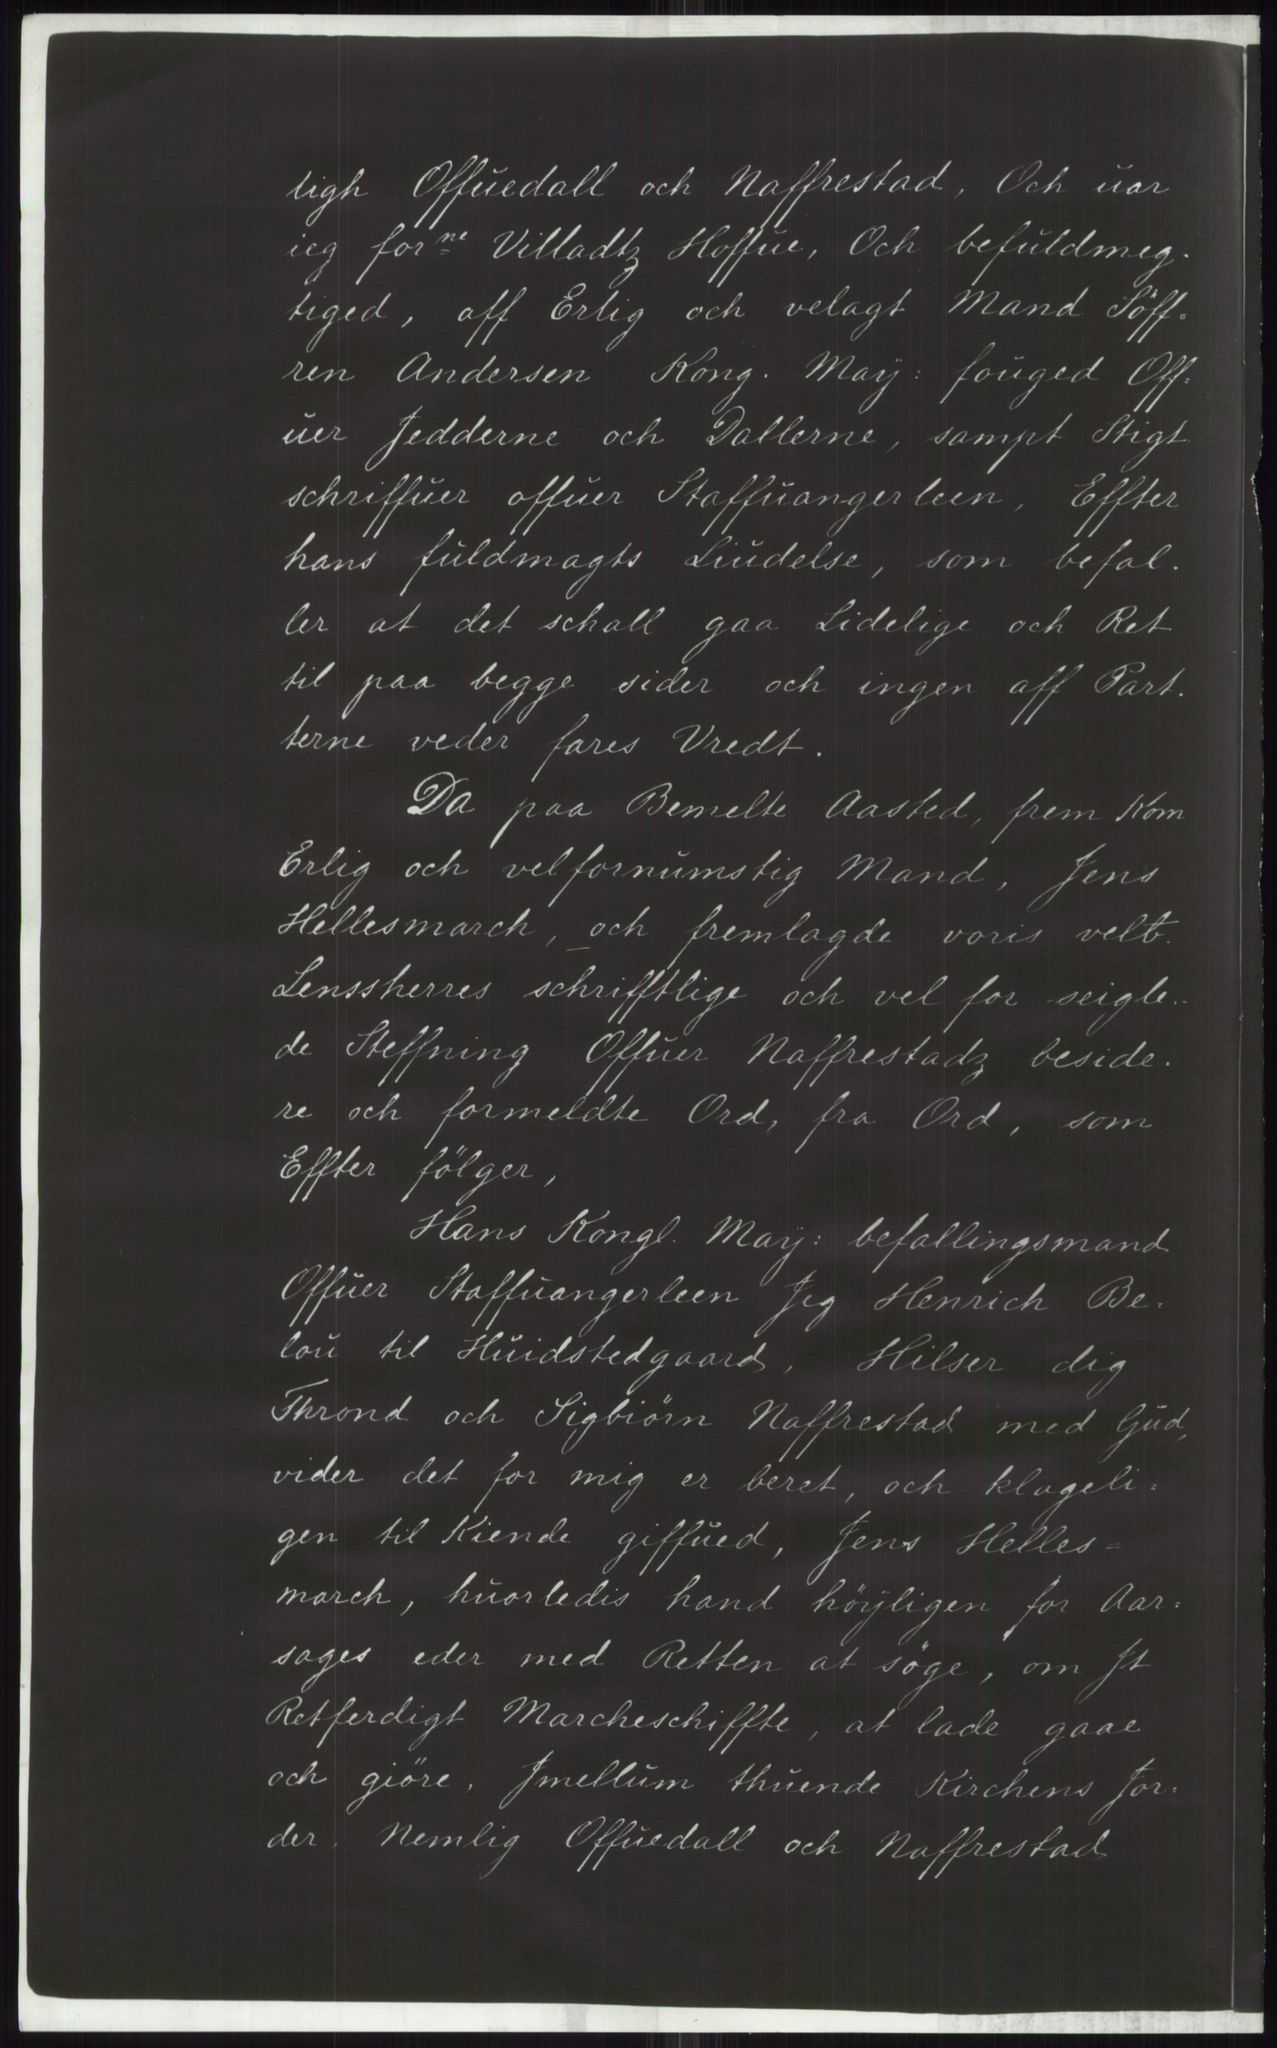 ligh Offuedall och Naffrestad, Och uar
ieg forne Villadtz Hoffue, Och befuldmeg-
tiged, aff Erlig och velagt Mand Söff-
ren Andersen Kong. Maÿ: fouged Off-
uer Jedderne och Dallerne, sampt Stigt
schriffuer offuer Staffuangerleen, Effter
hans fuldmagts Liudelse, som befal-
ler at det schall gaa Lidelige och Ret
til paa begge sider och ingen aff Part-
terne veder fares Vredt.
Da paa Bemelte Aasted, frem Kom
Erlig och velfornumstig Mand, Jens
Hellesmarch, och fremlagde voris velb.
Lenssherres schrifftlige och vel for seigle-
de Steffning Offuer Naffrestadz beside-
re och formeldte Ord, fra Ord, som
Effter fölger,
Hans Kongl. Maÿ: befallingsmand
Offuer Staffuangerleen Jeg Henrich Be-
lou til Huidstedgaard, Hilser dig
Thrond och Sigbiörn Naffrestad med Gud,
vider det for mig er beret, och klageli-
gen til Kiende giffued, Jens Helles-
march, huorledis hand höÿligen for Aar-
sages eder med Retten at söge, om Jt
Retferdigt Marcheschiffte, at lade gaae
och giöre, Jmellum thuende Kirchens Jor-
der, Nemlig Offuedall och Naffrestad